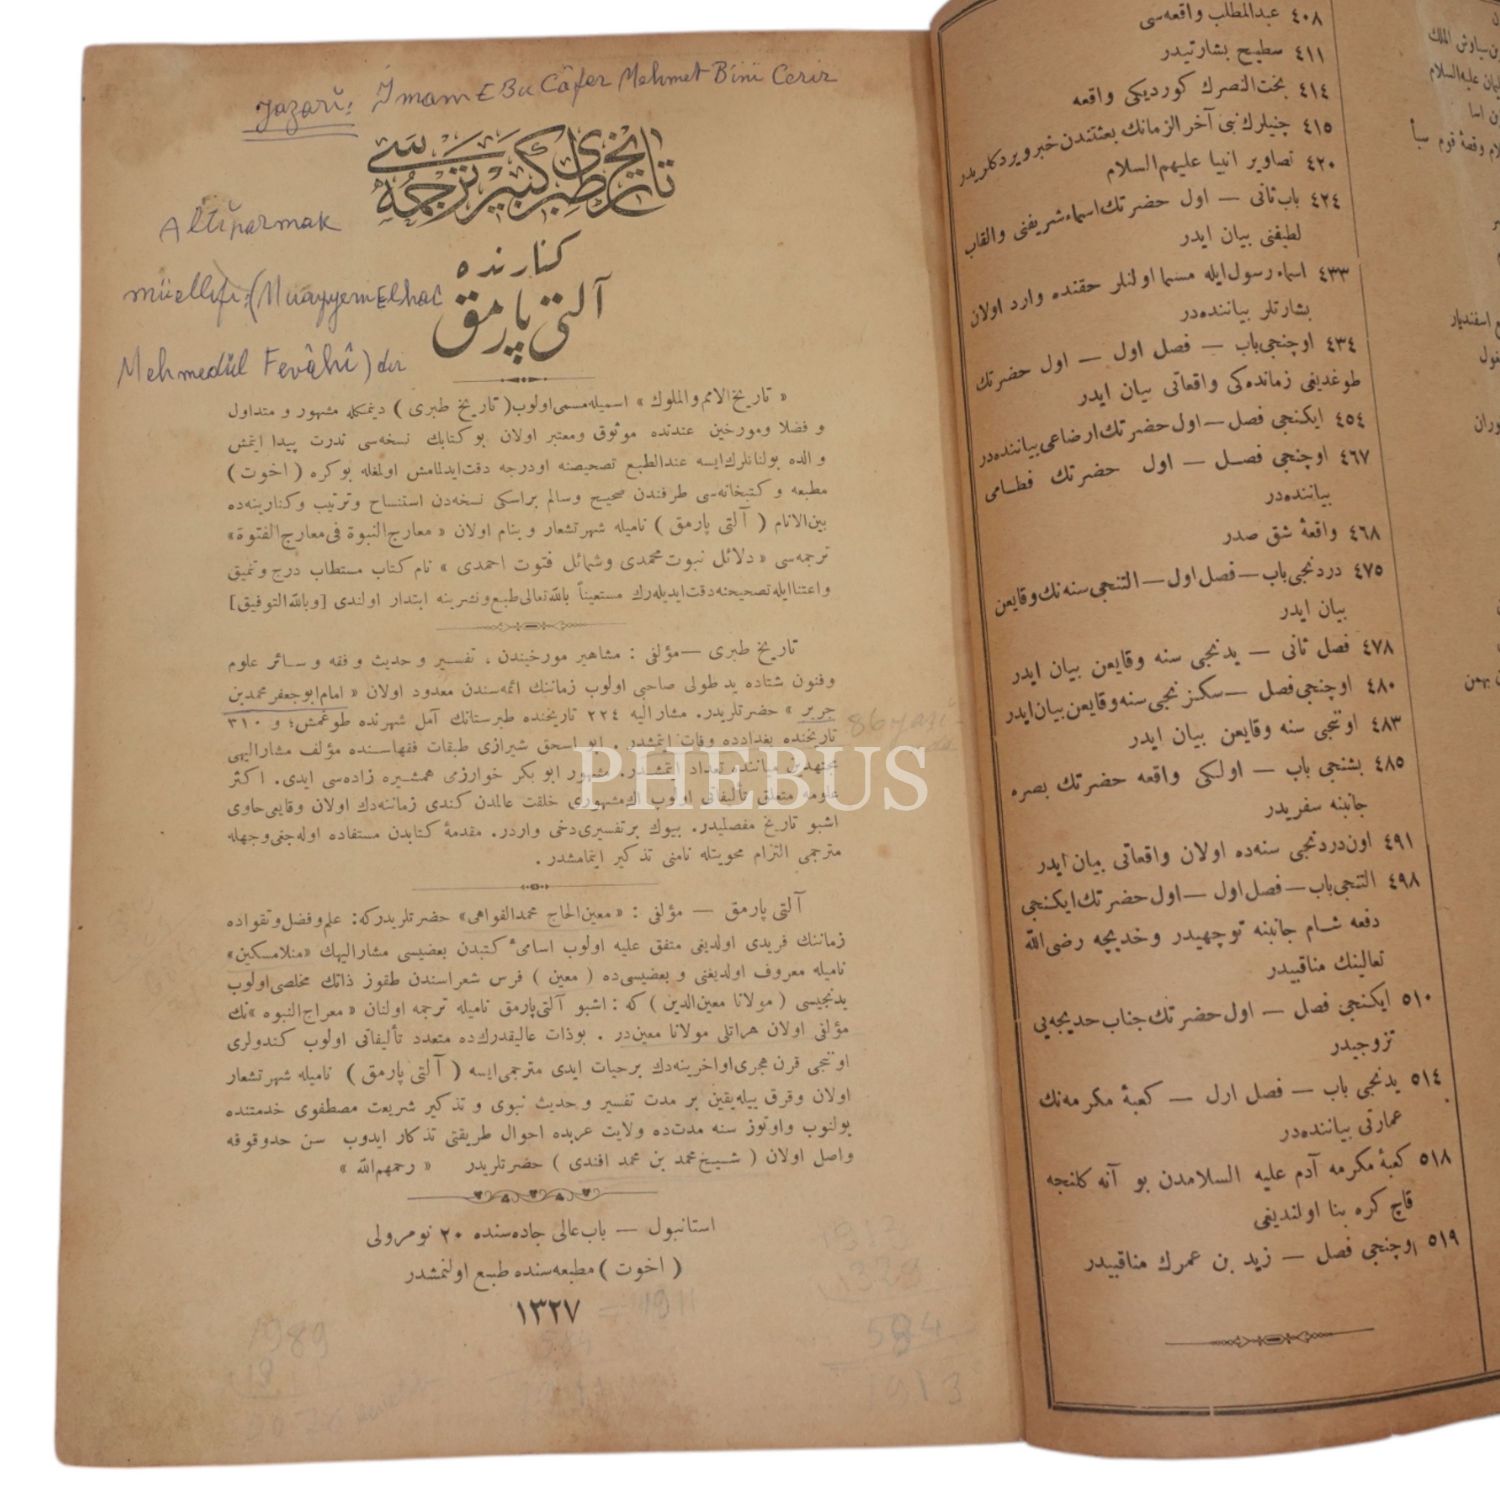 Yazarı: İmam Ebu Câfer Mehmet Bini Cerir
تاريخ طبرى كبير ترجمه سى
Altıparmak
كنارنده
müellifi: (Muayyem Elhac
آلتى پارمق
Mehmedül Fevâhî) dir
« تاريخ الامم والملوك » اسميله مسمى اولوب ( تاريخ طبرى ) ديمكله مشهور و متداول
و فضلا ومورخين عندنده موثوق ومعتبر اولان بو كتابك نسخه سى ندرت پيدا ايتمش
و الده بولنانلرك ايسه عندالطبع تصحيصنه اودرجه دقت ايدلمامش اولمغله بو كره ( اخوت )
مطبعه و كتبخانه سى طرفندن صحيح وسالم بر اسكى نسخه دن استنساخ وترتيب و كنارينه ده
بين الانام ( آلتى پارمق ) ناميله شهرتشعار و بنام اولان « معارج النبوة فى معارج الفتوة »
ترجمه سى « دلائل نبوت محمدى وشمائل فتوت احمدى » نام كتاب مستطاب درج وتنميق
واعتنا ايله تصحيحنه دقت ايديله رك مستعيناً بالله تعالى طبع ونشرينه ابتدار اولندى [ وبالله التوفيق ]
تاريخ طبرى — مؤلفى : مشاهير مورخيندن ، تفسير و حديث و فقه و سائر علوم
وفنون شتاده يد طولى صاحبى اولوب زماننك ائمه سندن معدود اولان « امام ابو جعفر محمد بن
جرير » حضرتلريدر. مشار اليه ٢٢٤ تاريخنده طبرستانك آمل شهرنده طوغمش؛ و ٣١٠
تاريخنده بغدادده وفات ايتمشدر . ابو اسحق شيرازى طبقات فقهاسنده مؤلف مشاراليهى
مجتهدين مياننده تعداد ايتمشدر. مشهور ابو بكر خوارزمى همشيره زاده سى ايدى. اكثر
علومه متعلق تأليفاتى اولوب اك مشهورى خلقت عالمدن كندى زماننه دك اولان وقايعى حاوى
اشبو تاريخ مفصليدر. بيوك بر تفسيرى دخى واردر. مقدمۀ كتابدن مستفاده اوله جغى وجهله
مترجمى التزام محويتله نامنى تذكير ايتمامشدر .
آلتى پارمق — مؤلفى : « معين الحاج محمد الفواهى » حضرتلريدركه: علم وفضل وتقواده
زماننك فريدى اولديغى متفق عليه اولوب اسامئ كتبدن بعضيسى مشاراليهك «منلامسكين»
ناميله معروف اولديغنى و بعضيسى ده ( معين ) فرس شعراسندن طقوز ذاتك مخلصى اولوب
يدنجيسى ( مولانا معين الدين ) كه : اشبو آلتى پارمق ناميله ترجمه اولنان « معراج النبوه » نك
مؤلفى اولان هراتلى مولانا معين در . بوذات عاليقدرك ده متعدد تأليفاتى اولوب كندولرى
اوننجى قرن هجرى اواخرينه دك بر حيات ايدى مترجمى ايسه ( آلتى پارمق ) ناميله شهرتشعار
اولان وقرق ييله يقين بر مدت تفسير و حديث نبوى و تذكير شريعت مصطفوى خدمتنده
بولنوب واوتوز سنه مدت ده ولايت عربده احوال طريقتى تذكار ايدوب سن حدوقوفه
واصل اولان ( شيخ محمد بن محمد افندى ) حضرتلريدر « رحمهم الله »
استانبول — باب عالى جاده سنده ٢٠ نومرولى
( اخوت ) مطبعه سنده طبع اولنمشدر
١٣٢٧
1989
19
584
1913
PHEBUS
٤٠٨ عبدالمطلب واقعه سى
٤١١ سطيح بشارتيدر
٤١٤ بخت النصرك كورديكى واقعه
٤١٥ جنيلرك نبى آخر الزمانك بعثتندن خبر ويردكلريدر
٤٢٠ تصاوير انبيا عليهم السلام
٤٢٤ باب ثانى — اول حضرتك اسماء شريفنى والقاب
لطيفنى بيان ايدر
٤٣٣ اسماء رسول ايله مسما اولنلر حقنده وارد اولان
بشارتلر بياننده در
٤٣٤ اوچنجى باب — فصل اول — اول حضرتك
طوغديغى زمانده كى واقعاتى بيان ايدر
٤٥٤ ايكنجى فصل — اول حضرتك ارضاعى بياننده در
٤٦٧ اوچنجى فصل — اول حضرتك فطامى
بياننده در
٤٦٨ واقعۀ شق صدر
٤٧٥ دردنجى باب — فصل اول — التنجى سنه نك وقايعن
بيان ايدر
٤٧٨ فصل ثانى — يدنجى سنه وقايعن بيان ايدر
٤٨٠ اوچنجى فصل — سكزنجى سنه وقايعن بيان ايدر
٤٨٣ اوننجى سنه وقايعن بيان ايدر
٤٨٥ بشنجى باب — اولكى واقعه حضرتك بصره
جانبنه سفريدر
٤٩١ اون دردنجى سنه ده اولان واقعاتى بيان ايدر
٤٩٨ التنجى باب — فصل اول — اول حضرتك ايكنجى
دفعه شام جانبنه توجهيدر وخديجه رضى الله
تعالينك مناقبيدر
٥١٠ ايكنجى فصل — اول حضرتك جناب خديجه يى
تزوجيدر
٥١٤ يدنجى باب — فصل اول — كعبۀ مكرمه نك
عمارتى بياننده در
٥١٨ كعبۀ مكرمه آدم عليه السلامدن بو آنه كلنجه
قاچ كره بنا اولنديغى
٥١٩ اوچنجى فصل — زيد بن عمرك مناقبيدر